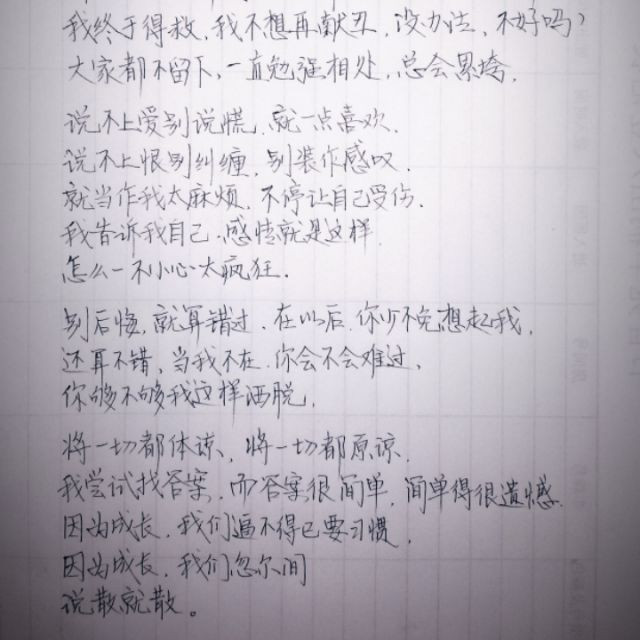 我终于得救,我不想再献丑,没办法,不好吗?
大家都不留下,一直勉强相处,总会累垮,
说不上爱别说慌,就一点喜欢,
说不上恨别纠缠,别装作感叹,
就当作我太麻烦,不停让自己受伤,
我告诉我自己,感情就是这样,
怎么一不小心太疯狂,
别后悔,就算错过,在以后,你少不免想起我,
还算不错,当我不在,你会不会难过,
你够不够我这样洒脱,
将一切都体谅,将一切都原谅,
我尝试找答案,而答案很简单,简单得很遗憾,
因为成长,我们逼不得已要习惯,
因为成长,我们忽尔间
说散就散。